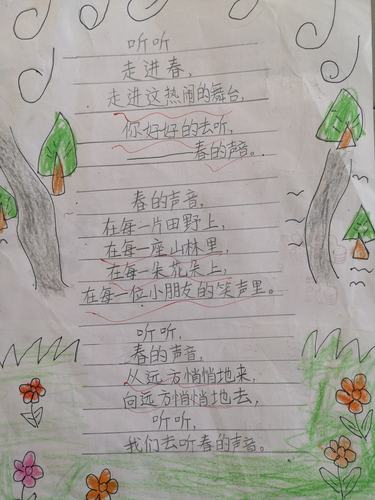 听听
走进春，
走进这热闹的舞台，
你好好的去听，
——春的声音。
春的声音，
在每一片田野上，
在每一座山林里，
在每一朵花朵上，
在每一位小朋友的笑声里。
听听，
春的声音，
从远方悄悄地来，
向远方悄悄地去，
听听，
我们去听春的声音。